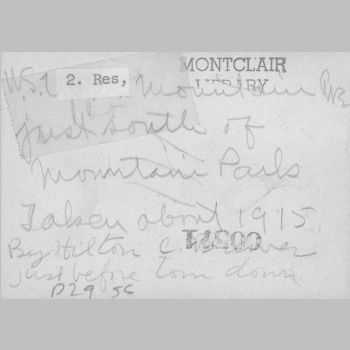 MONTCLAIR
LIBRARY
2. Res,
W.S. Mountain Ave
just south of
Mountain Park
Taken about 1915
By Hilton C.
just before torn down.
P29 56